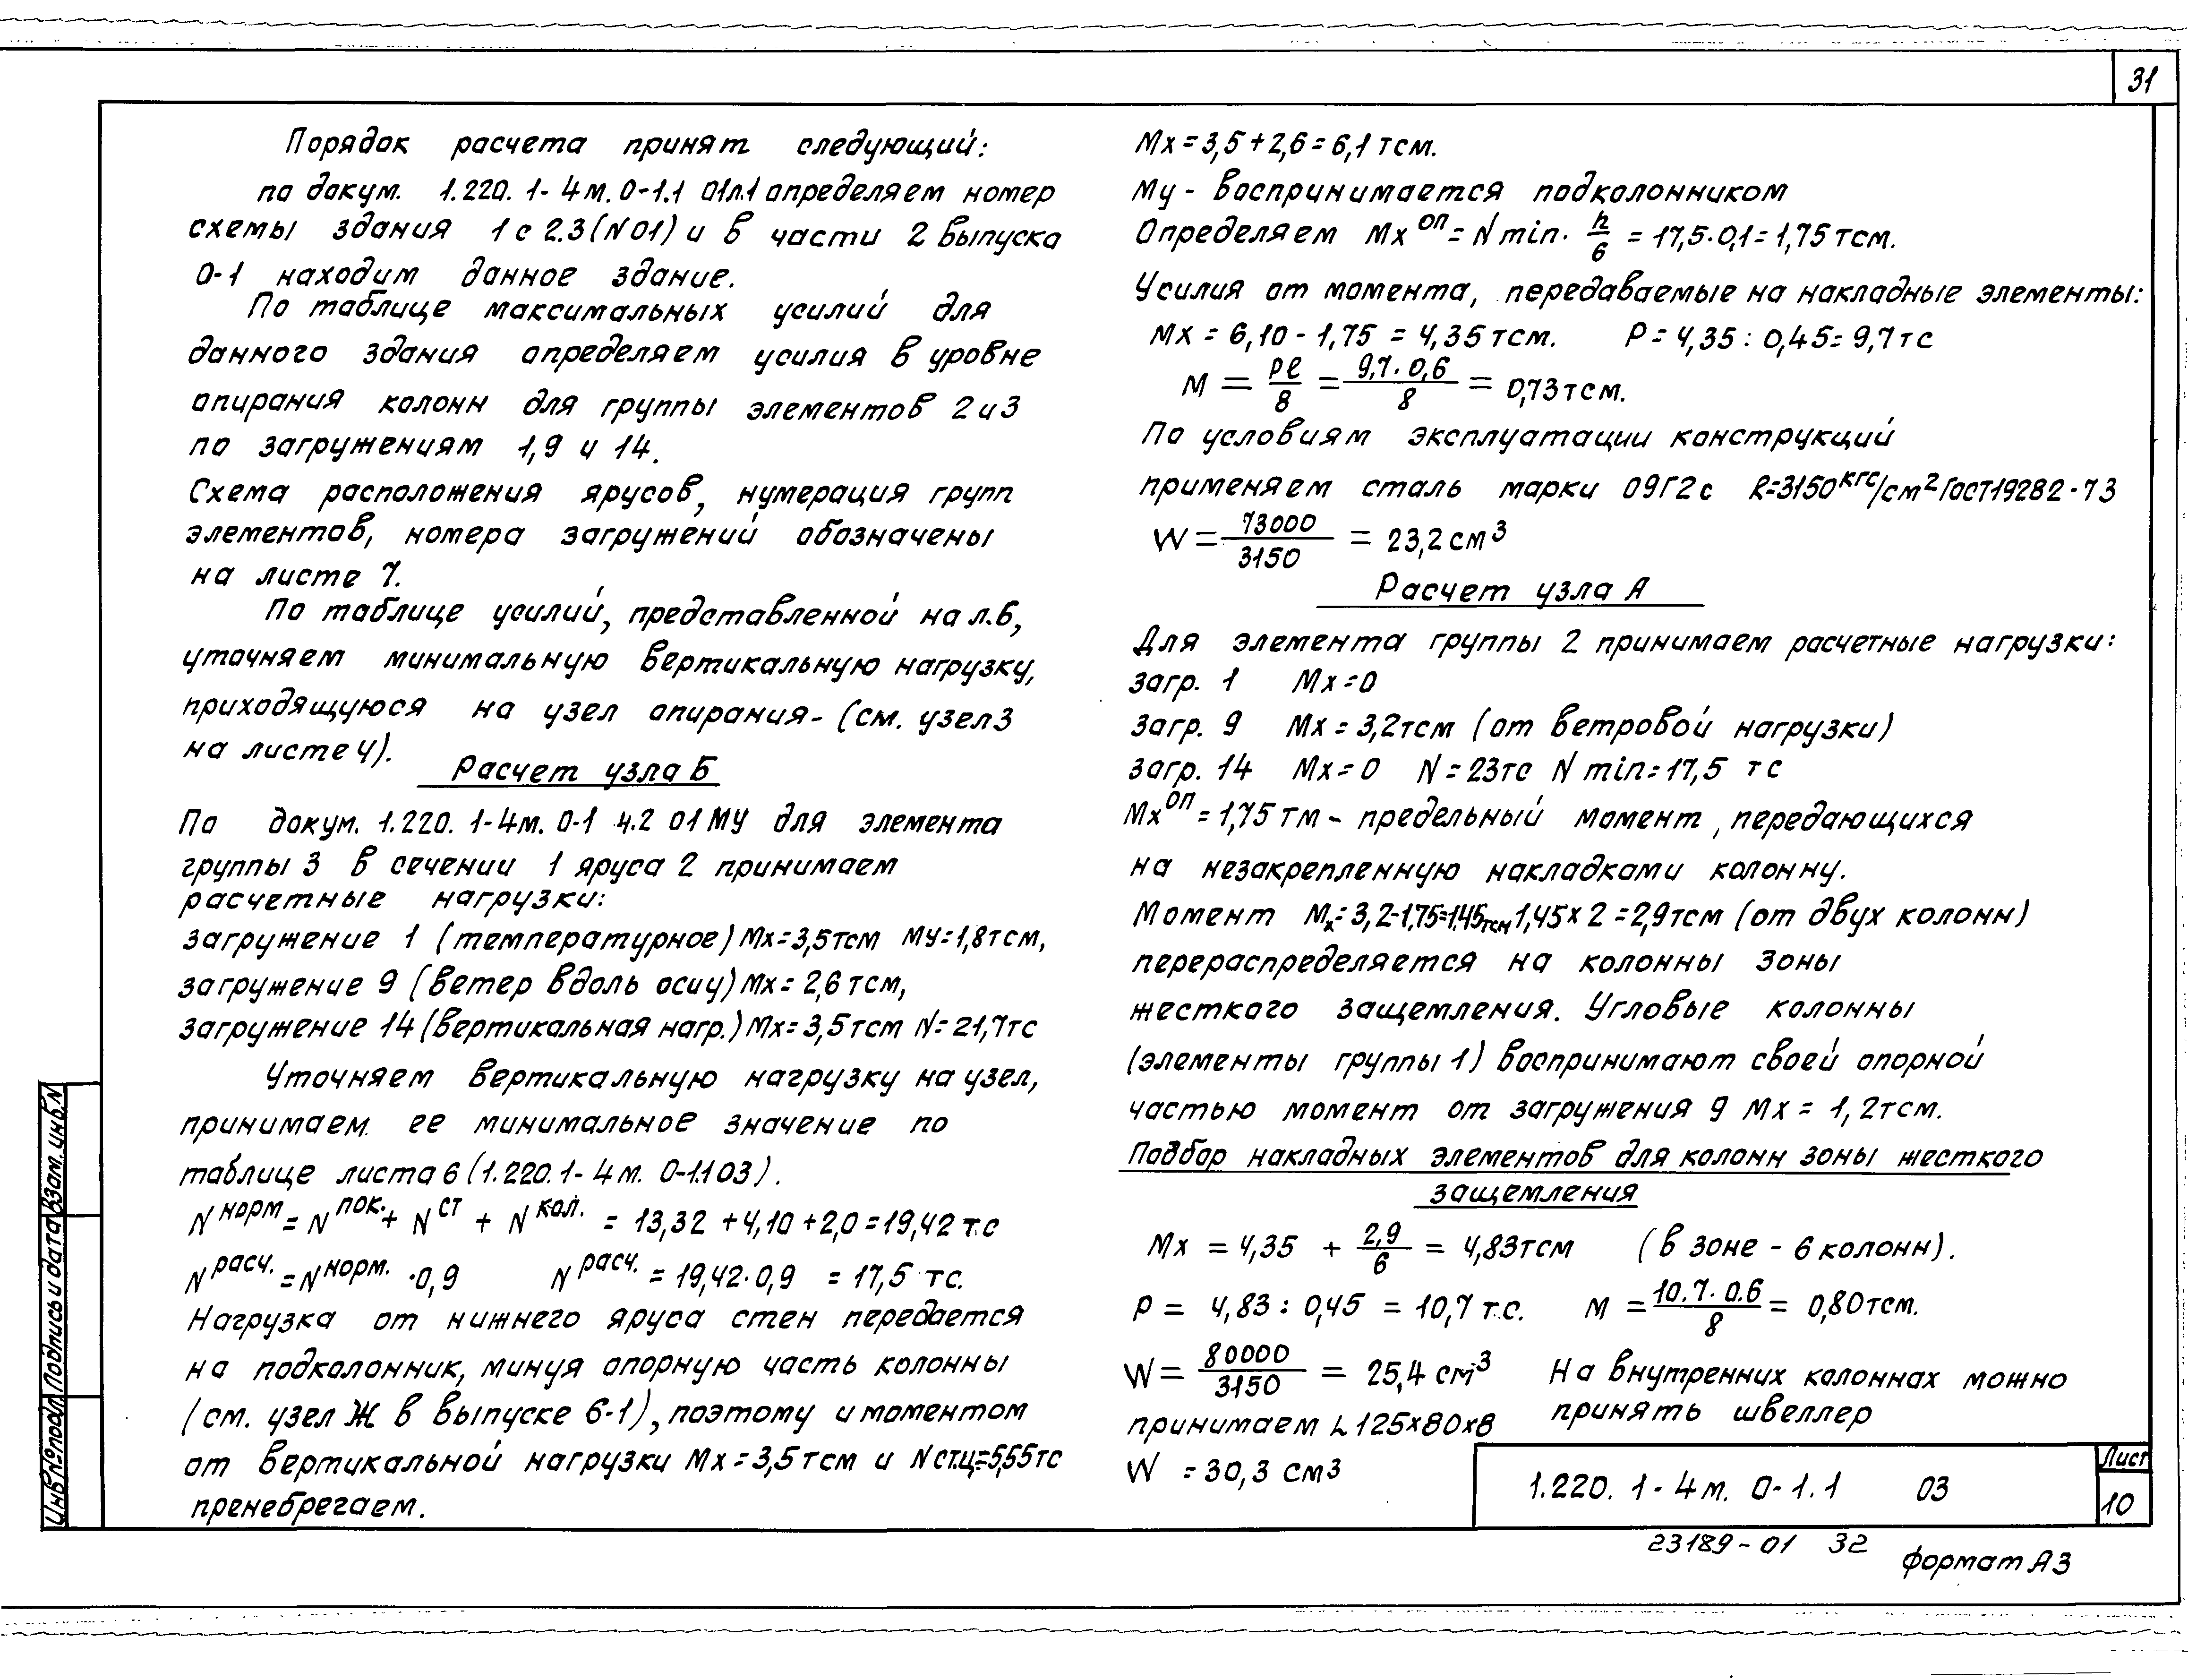 31
Порядок расчета принят следующий:
по докум. 1.220. 1-4м. 0-1.1 01л.1 определяем номер
схемы здания 1с 2.3 (N01) и в части 2 выпуска
0-1 находим данное здание.
По таблице максимальных усилий для
данного здания определяем усилия в уровне
опирания колонн для группы элементов 2 и 3
по загружениям 1,9 и 14.
Схема расположения ярусов, нумерация групп
элементов, номера загружений обозначены
на листе 7.
По таблице усилий, представленной на л.6,
уточняем минимальную вертикальную нагрузку,
приходящуюся на узел опирания - (см. узел 3
на листе 4).
Расчет узла Б
По докум. 1.220. 1-4м. 0-1 ч.2 01 МУ для элемента
группы 3 в сечении 1 яруса 2 принимаем
расчетные нагрузки:
загружение 1 (температурное) Mx=3,5тсм My=1,8тсм,
загружение 9 (ветер вдоль оси y) Mx=2,6 тсм,
загружение 14 (вертикальная нагр.) Mx=3,5тсм N=21,7тс
Уточняем вертикальную нагрузку на узел,
принимаем ее минимальное значение по
таблице листа 6 (1.220. 1-4м. 0-1.1 03).
N норм = N пок. + N ст + N кол. = 13,32 + 4,10 + 2,0 = 19,42 т.с
N расч. = N норм. · 0,9 N расч. = 19,42 · 0,9 = 17,5 тс.
Нагрузка от нижнего яруса стен передается
на подколонник, минуя опорную часть колонны
(см. узел Ж в выпуске 6-1), поэтому и моментом
от вертикальной нагрузки Mx=3,5 тсм и N ст.ц=5,55тс
пренебрегаем.
Mx = 3,5 + 2,6 = 6,1 тсм.
My - воспринимается подколонником
Определяем Mx оп = N min · h/6 = 17,5 · 0,1 = 1,75 тсм.
Усилия от момента, передаваемые на накладные элементы:
Mx = 6,10 - 1,75 = 4,35 тсм. P = 4,35 : 0,45 = 9,7 тс
M = Pl/8 = 9,7 · 0,6/8 = 0,73 тсм.
По условиям эксплуатации конструкций
применяем сталь марки 09Г2с R=3150 кгс/см² Гост19282-73
W = 73000/3150 = 23,2 см³
Расчет узла А
Для элемента группы 2 принимаем расчетные нагрузки:
загр. 1 Mx=0
загр. 9 Mx = 3,2тсм (от ветровой нагрузки)
загр. 14 Mx=0 N = 23тс N min = 17,5 тс
Mx оп = 1,75 тм - предельный момент, передающихся
на незакрепленную накладками колонну.
Момент Mx=3,2-1,75=1,45тсм 1,45 x 2 = 2,9тсм (от двух колонн)
перераспределяется на колонны зоны
жесткого защемления. Угловые колонны
(элементы группы 1) воспринимают своей опорной
частью момент от загружения 9 Mx = 1,2тсм.
Подбор накладных элементов для колонн зоны жесткого
защемления
Mx = 4,35 + 2,9/6 = 4,83тсм (в зоне - 6 колонн).
P = 4,83 : 0,45 = 10,7 т.с. M = 10.7 · 0.6/8 = 0,80тсм.
W = 80000/3150 = 25,4 см³ На внутренних колоннах можно
принять швеллер
принимаем L 125x80x8
W = 30,3 см3
1.220. 1-4м. 0-1.1 03
Лист
10
23189-01 32
формат А3
Инв.№подл. Подпись и дата Взам. инв.N